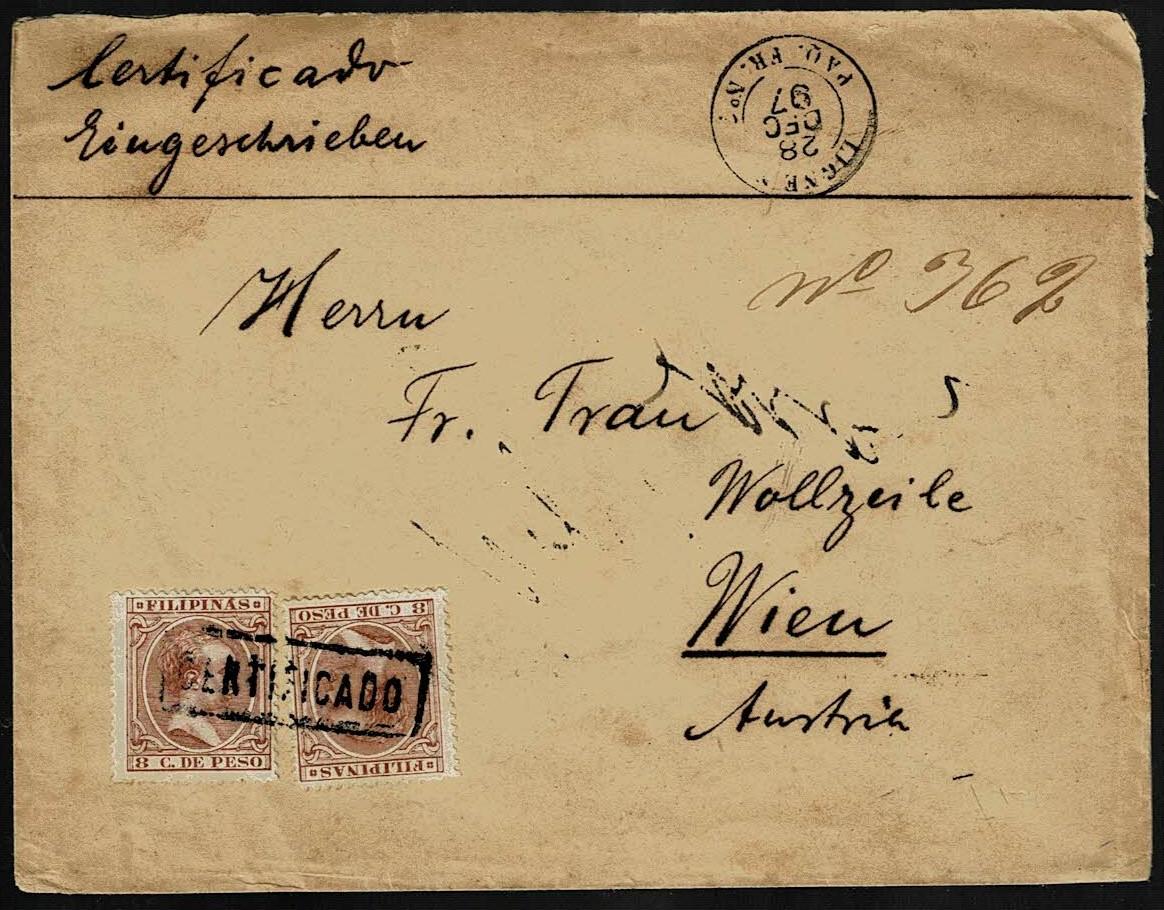 Certificado
Eingeschrieben
LIGNE N
PAQ. FR. No
28
DEC
97
No 362
Herrn
Fr. Trau
Wollzeile
Wien
Austria
FILIPINAS
8 C. DE PESO
8 C. DE PESO
FILIPINAS
CERTIFICADO